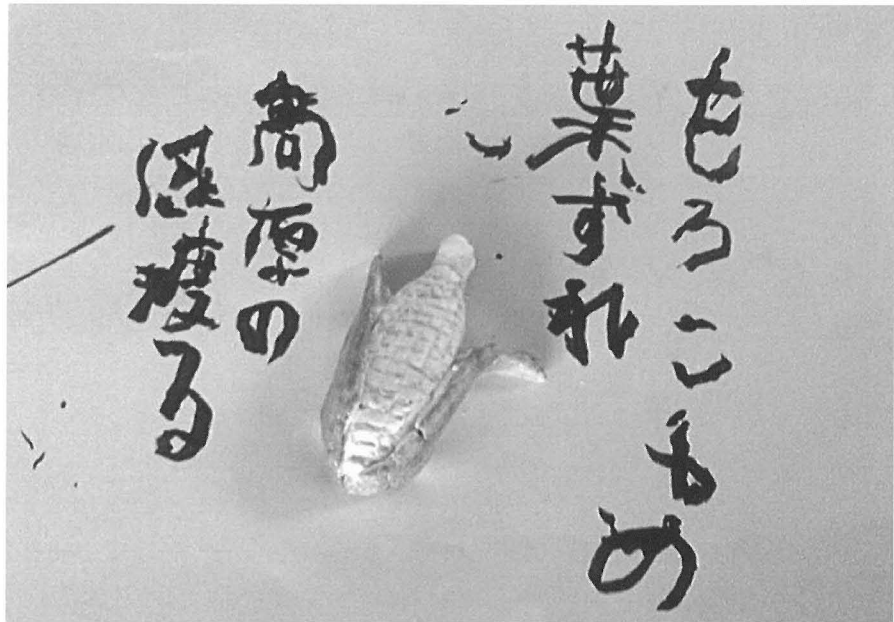 もろこもめ
葉ずれ
高原の
風渡る